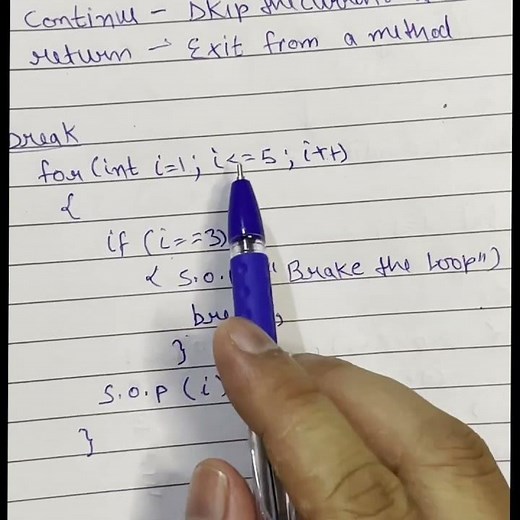 Continue - Skip the current
return → Exit from a method
break
for (int i=1; i<=5; i++)
{
if (i==3)
{ S.O. "Brake the loop")
bre
}
S.O.P (i)
}